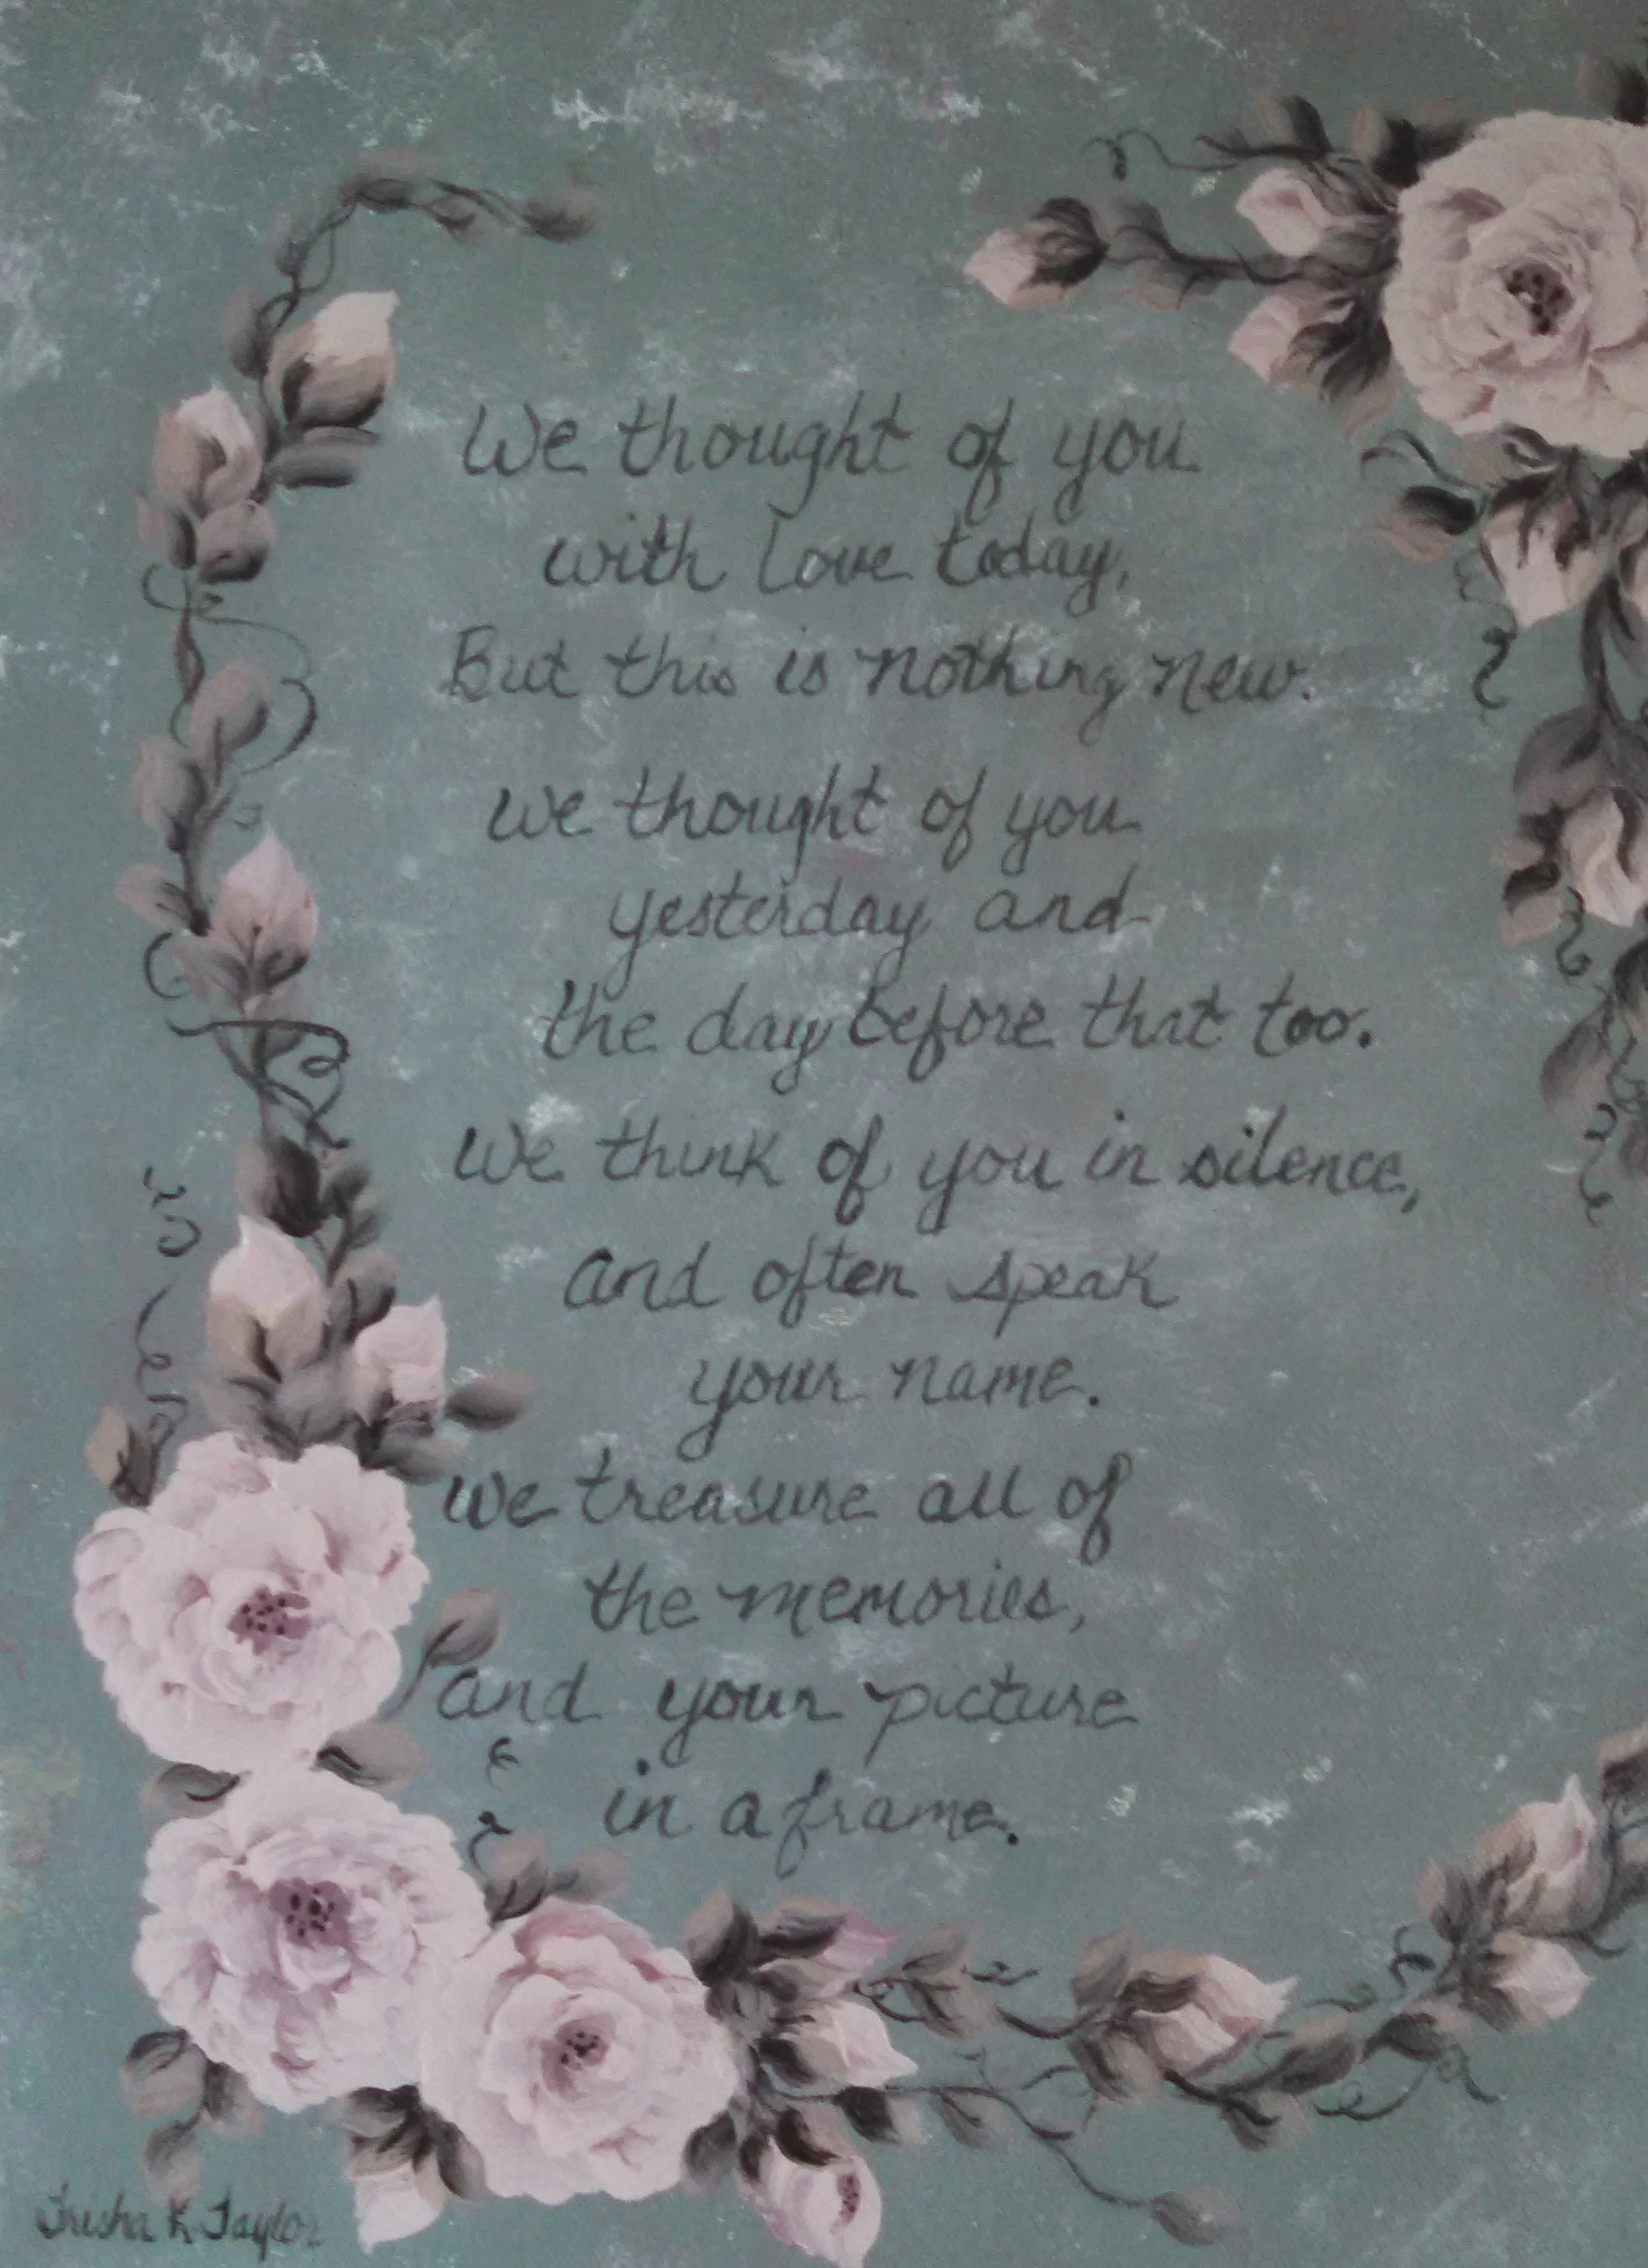 We thought of you
with love today,
But this is nothing new.
We thought of you
yesterday and
the day before that too.
We think of you in silence,
and often speak
your name.
We treasure all of
the memories,
and your picture
in a frame.
Trisha K Taylor